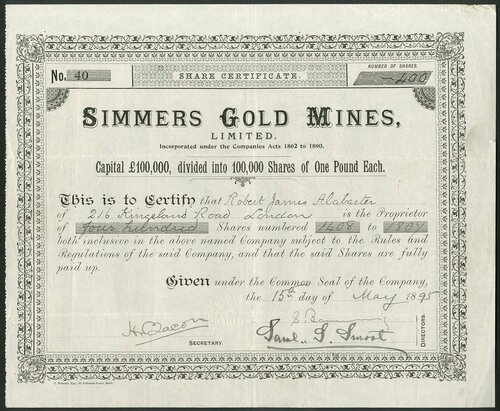 No. 40
SHARE CERTIFICATE.
NUMBER OF SHARES.
400
SIMMERS GOLD MINES,
LIMITED.
Incorporated under the Companies Acts 1862 to 1890.
Capital £100,000, divided into 100,000 Shares of One Pound Each.
This is to Certify that Robert James Alabaster
of 216 Kingsland Road London is the Proprietor
of four hundred Shares numbered 1408 to 1807
both inclusive in the above named Company subject to the Rules and
Regulations of the said Company, and that the said Shares are fully
paid up.
Given under the Common Seal of the Company,
the 15th day of May 1895
H. Bacon
SECRETARY.
Saml. S. Smoot
DIRECTORS.